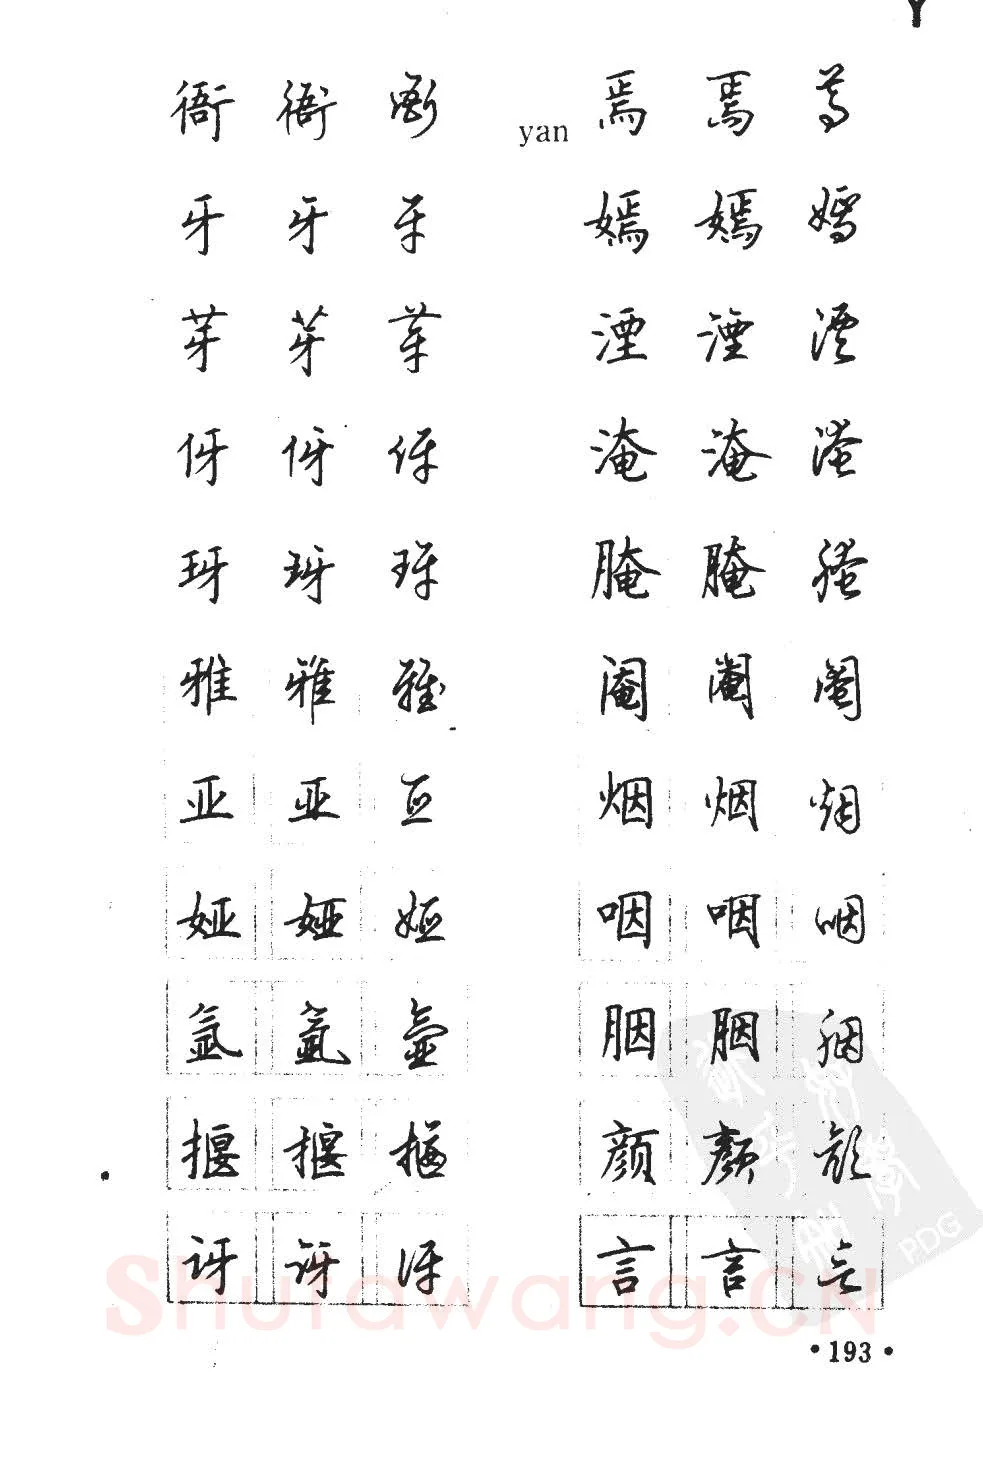 Y
衙 衙 衙
牙 牙 牙
芽 芽 芽
伢 伢 伢
玡 玡 玡
雅 雅 雅
亚 亚 亚
娅 娅 娅
氩 氩 氩
揠 揠 揠
讶 讶 讶
yan 焉 焉 焉
嫣 嫣 嫣
湮 湮 湮
淹 淹 淹
腌 腌 腌
阉 阉 阉
烟 烟 烟
咽 咽 咽
胭 胭 胭
颜 颜 颜
言 言 言
·193·
Shufawang.CN
PDG